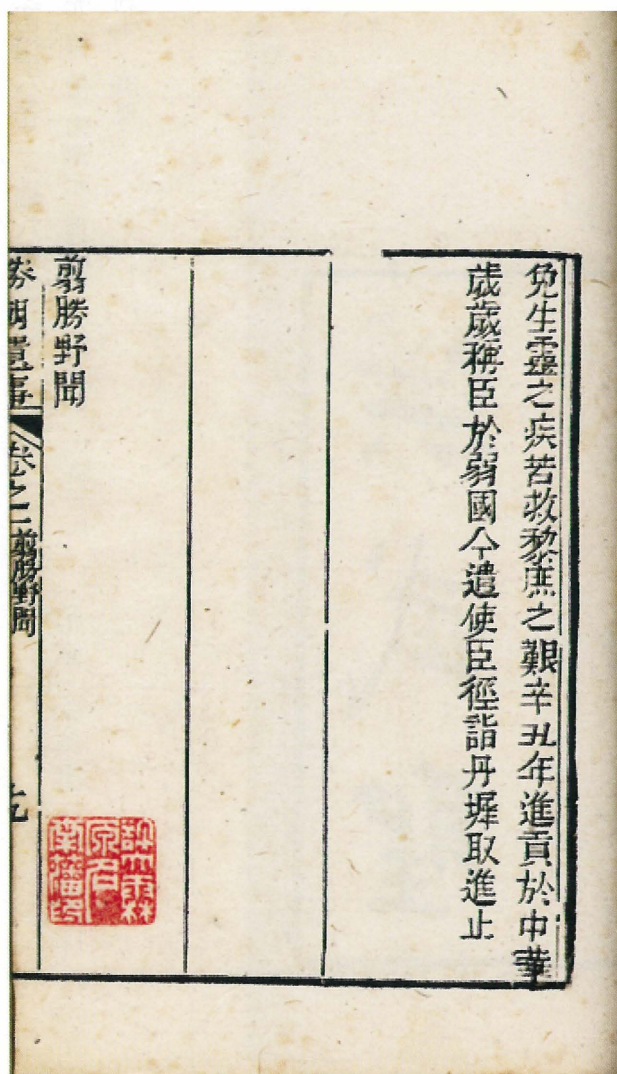 免生靈之疾苦救黎庶之艱辛丑年進貢於中華
歲歲稱臣於弱國今遣使臣徑詣丹墀取進止
翦勝野聞
勝朝遺事
卷之二
翦勝野聞
九